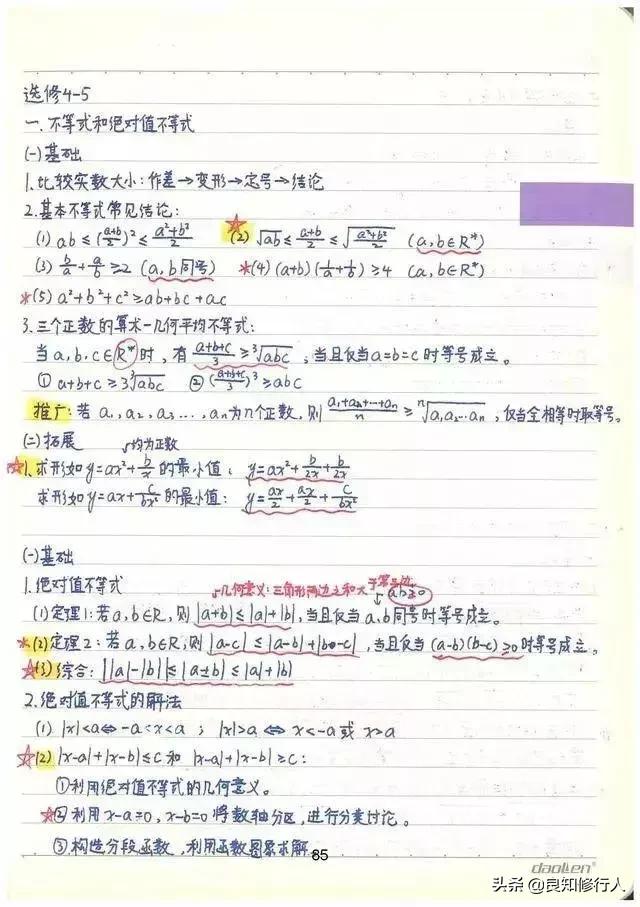 选修4-5
一、不等式和绝对值不等式
(一)基础
1.比较实数大小:作差→变形→定号→结论
2.基本不等式常见结论:
(1) ab≤(a+b/2)²≤a²+b²/2 ☆(2) √ab≤a+b/2≤√a²+b²/2 (a,b∈R*)
(3) b/a+a/b≥2 (a,b同号) *(4) (a+b)(1/a+1/b)≥4 (a,b∈R*)
*(5) a²+b²+c²≥ab+bc+ac
3.三个正数的算术-几何平均不等式:
当a,b,c∈R*时,有 a+b+c/3≥³√abc,当且仅当a=b=c时等号成立。
① a+b+c≥3³√abc ② (a+b+c/3)³≥abc
推广:若a₁,a₂,a₃...,aₙ为n个正数,则 a₁+a₂+…+aₙ/n≥ⁿ√a₁a₂…aₙ,仅当全相等时取等号。
(二)拓展 均为正数
☆1.求形如y=ax²+b/x的最小值: y=ax²+b/2x+b/2x
求形如y=ax+c/bx²的最小值: y=ax/2+ax/2+c/bx²
(一)基础
1.绝对值不等式 几何意义:三角形两边之和大于第三边 ab≥0
(1)定理1:若a,b∈R,则|a+b|≤|a|+|b|,当且仅当a,b同号时等号成立。
*(2)定理2:若a,b∈R,则|a-c|≤|a-b|+|b-c|,当且仅当(a-b)(b-c)≥0时等号成立。
☆(3)综合:||a|-|b||≤|a±b|≤|a|+|b|
2.绝对值不等式的解法
(1) |x|<a⇔-a<x<a ; |x|>a⇔x<-a或x>a
☆(2) |x-a|+|x-b|≤c和|x-a|+|x-b|≥c:
①利用绝对值不等式的几何意义。
☆②利用x-a=0,x-b=0将数轴分区,进行分类讨论。
③构造分段函数,利用函数图象求解
85
daoLen®
头条 @良知修行人